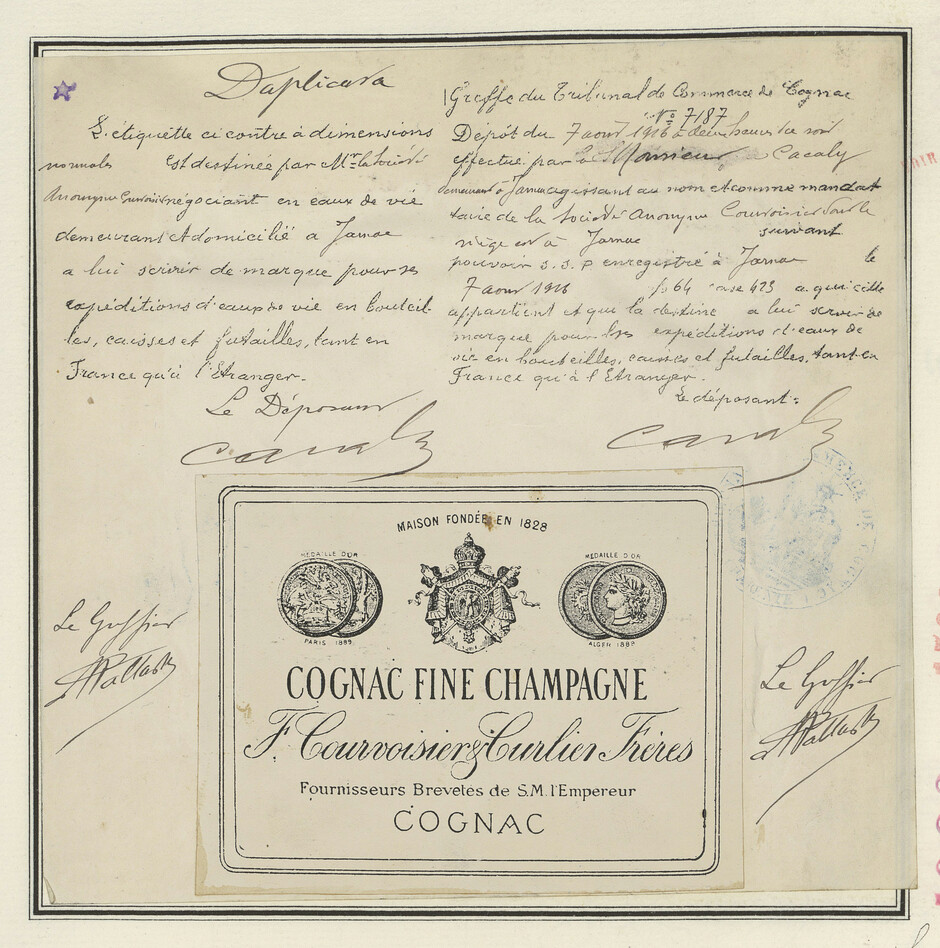 Duplicata
L'étiquette ci contre à dimensions
normales Est destinée par Mr la Société
Anonyme Courvoisier négociant en eaux de vie
demeurant et domicilié a Jarnac
a lui servir de marque pour ses
expéditions d'eaux de vie en bouteil-
les, caisses et futailles, tant en
France qu'à l'Etranger.
Le Déposant
Greffe du Tribunal de Commerce de Cognac
No 7187
Dépôt du 7 aout 1916 à deux heures du soir
effectué par Monsieur Cacaly
demeurant à Jarnac agissant au nom et comme mandat
taire de la Société Anonyme Courvoisier dont le
siège est à Jarnac suivant
pouvoir s.s.p enregistré à Jarnac le
7 aout 1916 fo 64 case 423 a qui cette
appartient et que la destine a lui servir de
marque pour les expéditions d'eaux de
vie en bouteilles, caisses et futailles, tant en
France qu'à l'Etranger.
Le déposant:
MAISON FONDÉE EN 1828
MEDAILLE D'OR
MEDAILLE D'OR
PARIS 1889
ALGER 1888
COGNAC FINE CHAMPAGNE
F. Courvoisier & Curlier Frères
Fournisseurs Brevetés de S.M. l'Empereur
COGNAC
Le Greffier
Le Greffier